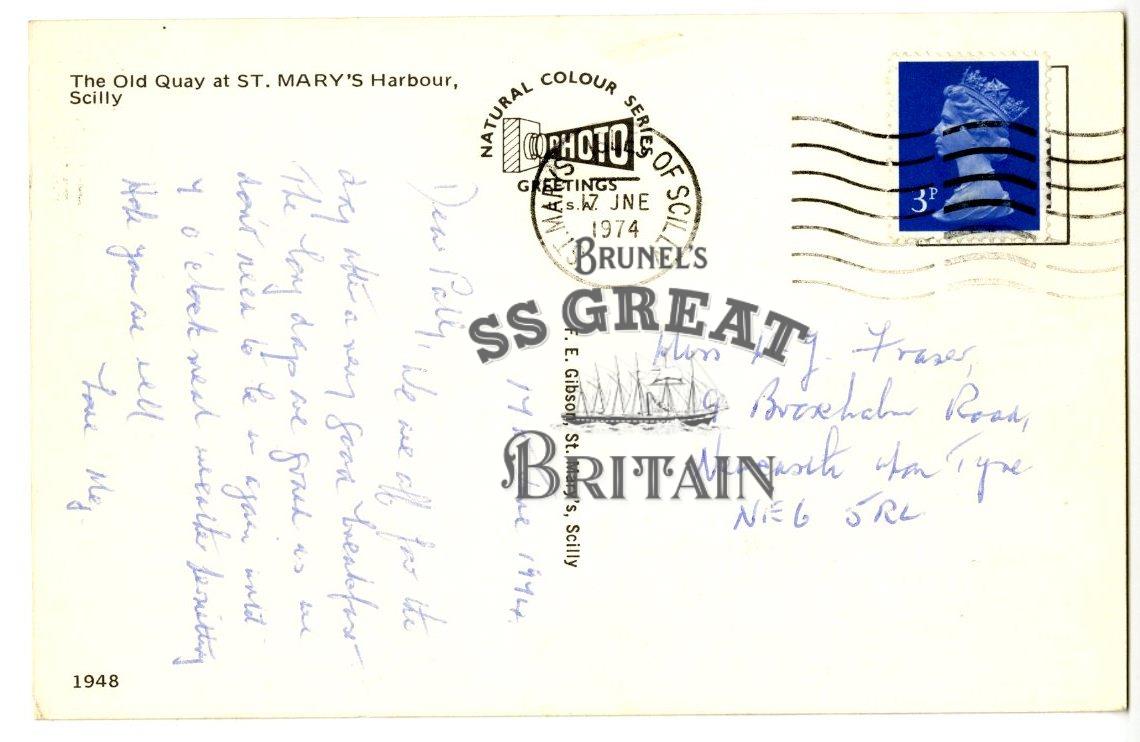 The Old Quay at ST. MARY'S Harbour,
Scilly
NATURAL COLOUR SERIES
PHOTO
GREETINGS
ST. MARY'S OF SCILLY
17 JNE
1974
3P
BRUNEL'S
SS GREAT
BRITAIN
F. E. Gibson, St. Mary's, Scilly
17 June 1974.
Dear Polly, We are off for the
day after a very good breakfast.
The long days are grand as we
don't need to be in again until
7 o'clock meal weather permitting
Hope you are well
Love Meg.
Miss Fraser,
9 Broxholm Road,
Newcastle upon Tyne
NE6 5RL
1948